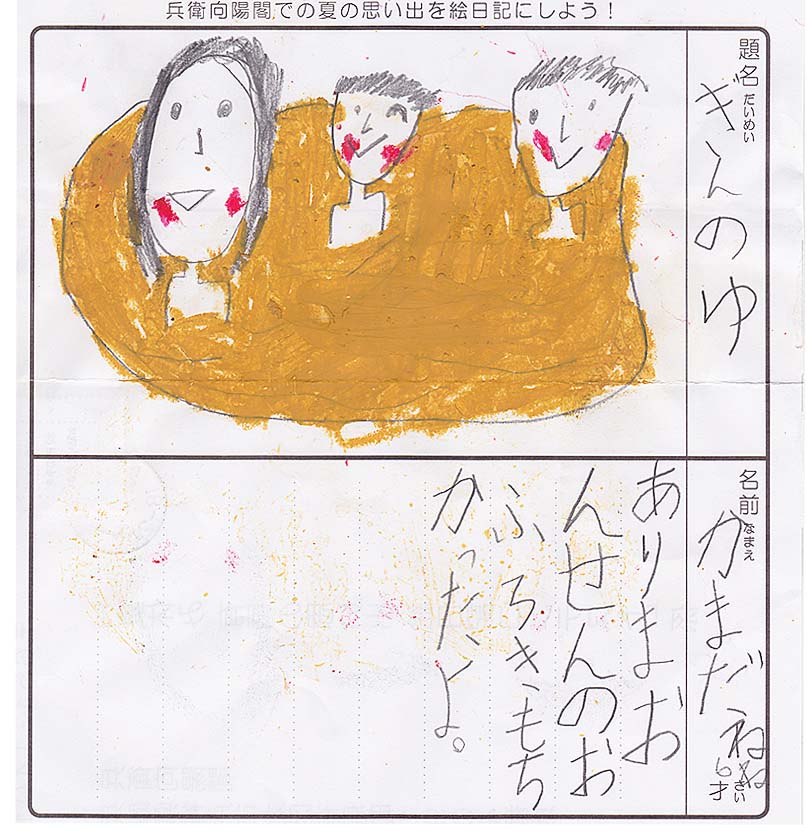 兵衛向陽閣での夏の思い出を絵日記にしよう！
題名
だいめい
きんのゆ
名前
なまえ
かまだねね
6才
さい
ありまお
んせんのお
ふろきもち
かったよ。